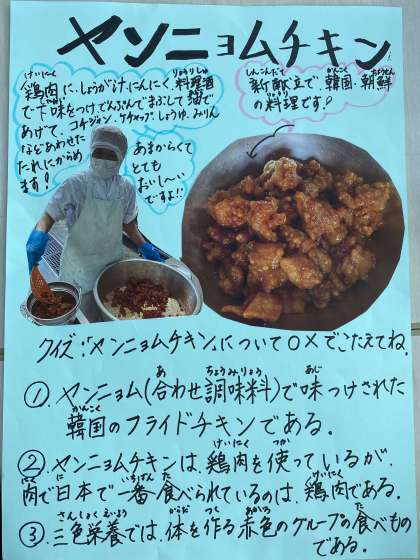 ヤンニョムチキン
鶏肉に、しょうが汁、にんにく、料理酒
で下味をつけてでんぷんでまぶして油で
あげて、コチジャン・ケチャップ・しょうゆ・みりん
などあわせた
たれにからめ
ます！
新献立で、韓国・朝鮮
の料理です！
あまからくて
とても
おいし〜い
ですよ!!
クイズ:「ヤンニョムチキン」について○×でこたえてね.
①.ヤンニョム(合わせ調味料)で味つけされた
韓国のフライドチキンである.
②.ヤンニョムチキンは、鶏肉を使っているが、
肉で日本で一番食べられているのは、鶏肉である.
③.三色栄養では、体を作る赤色のグループの食べもの
である.